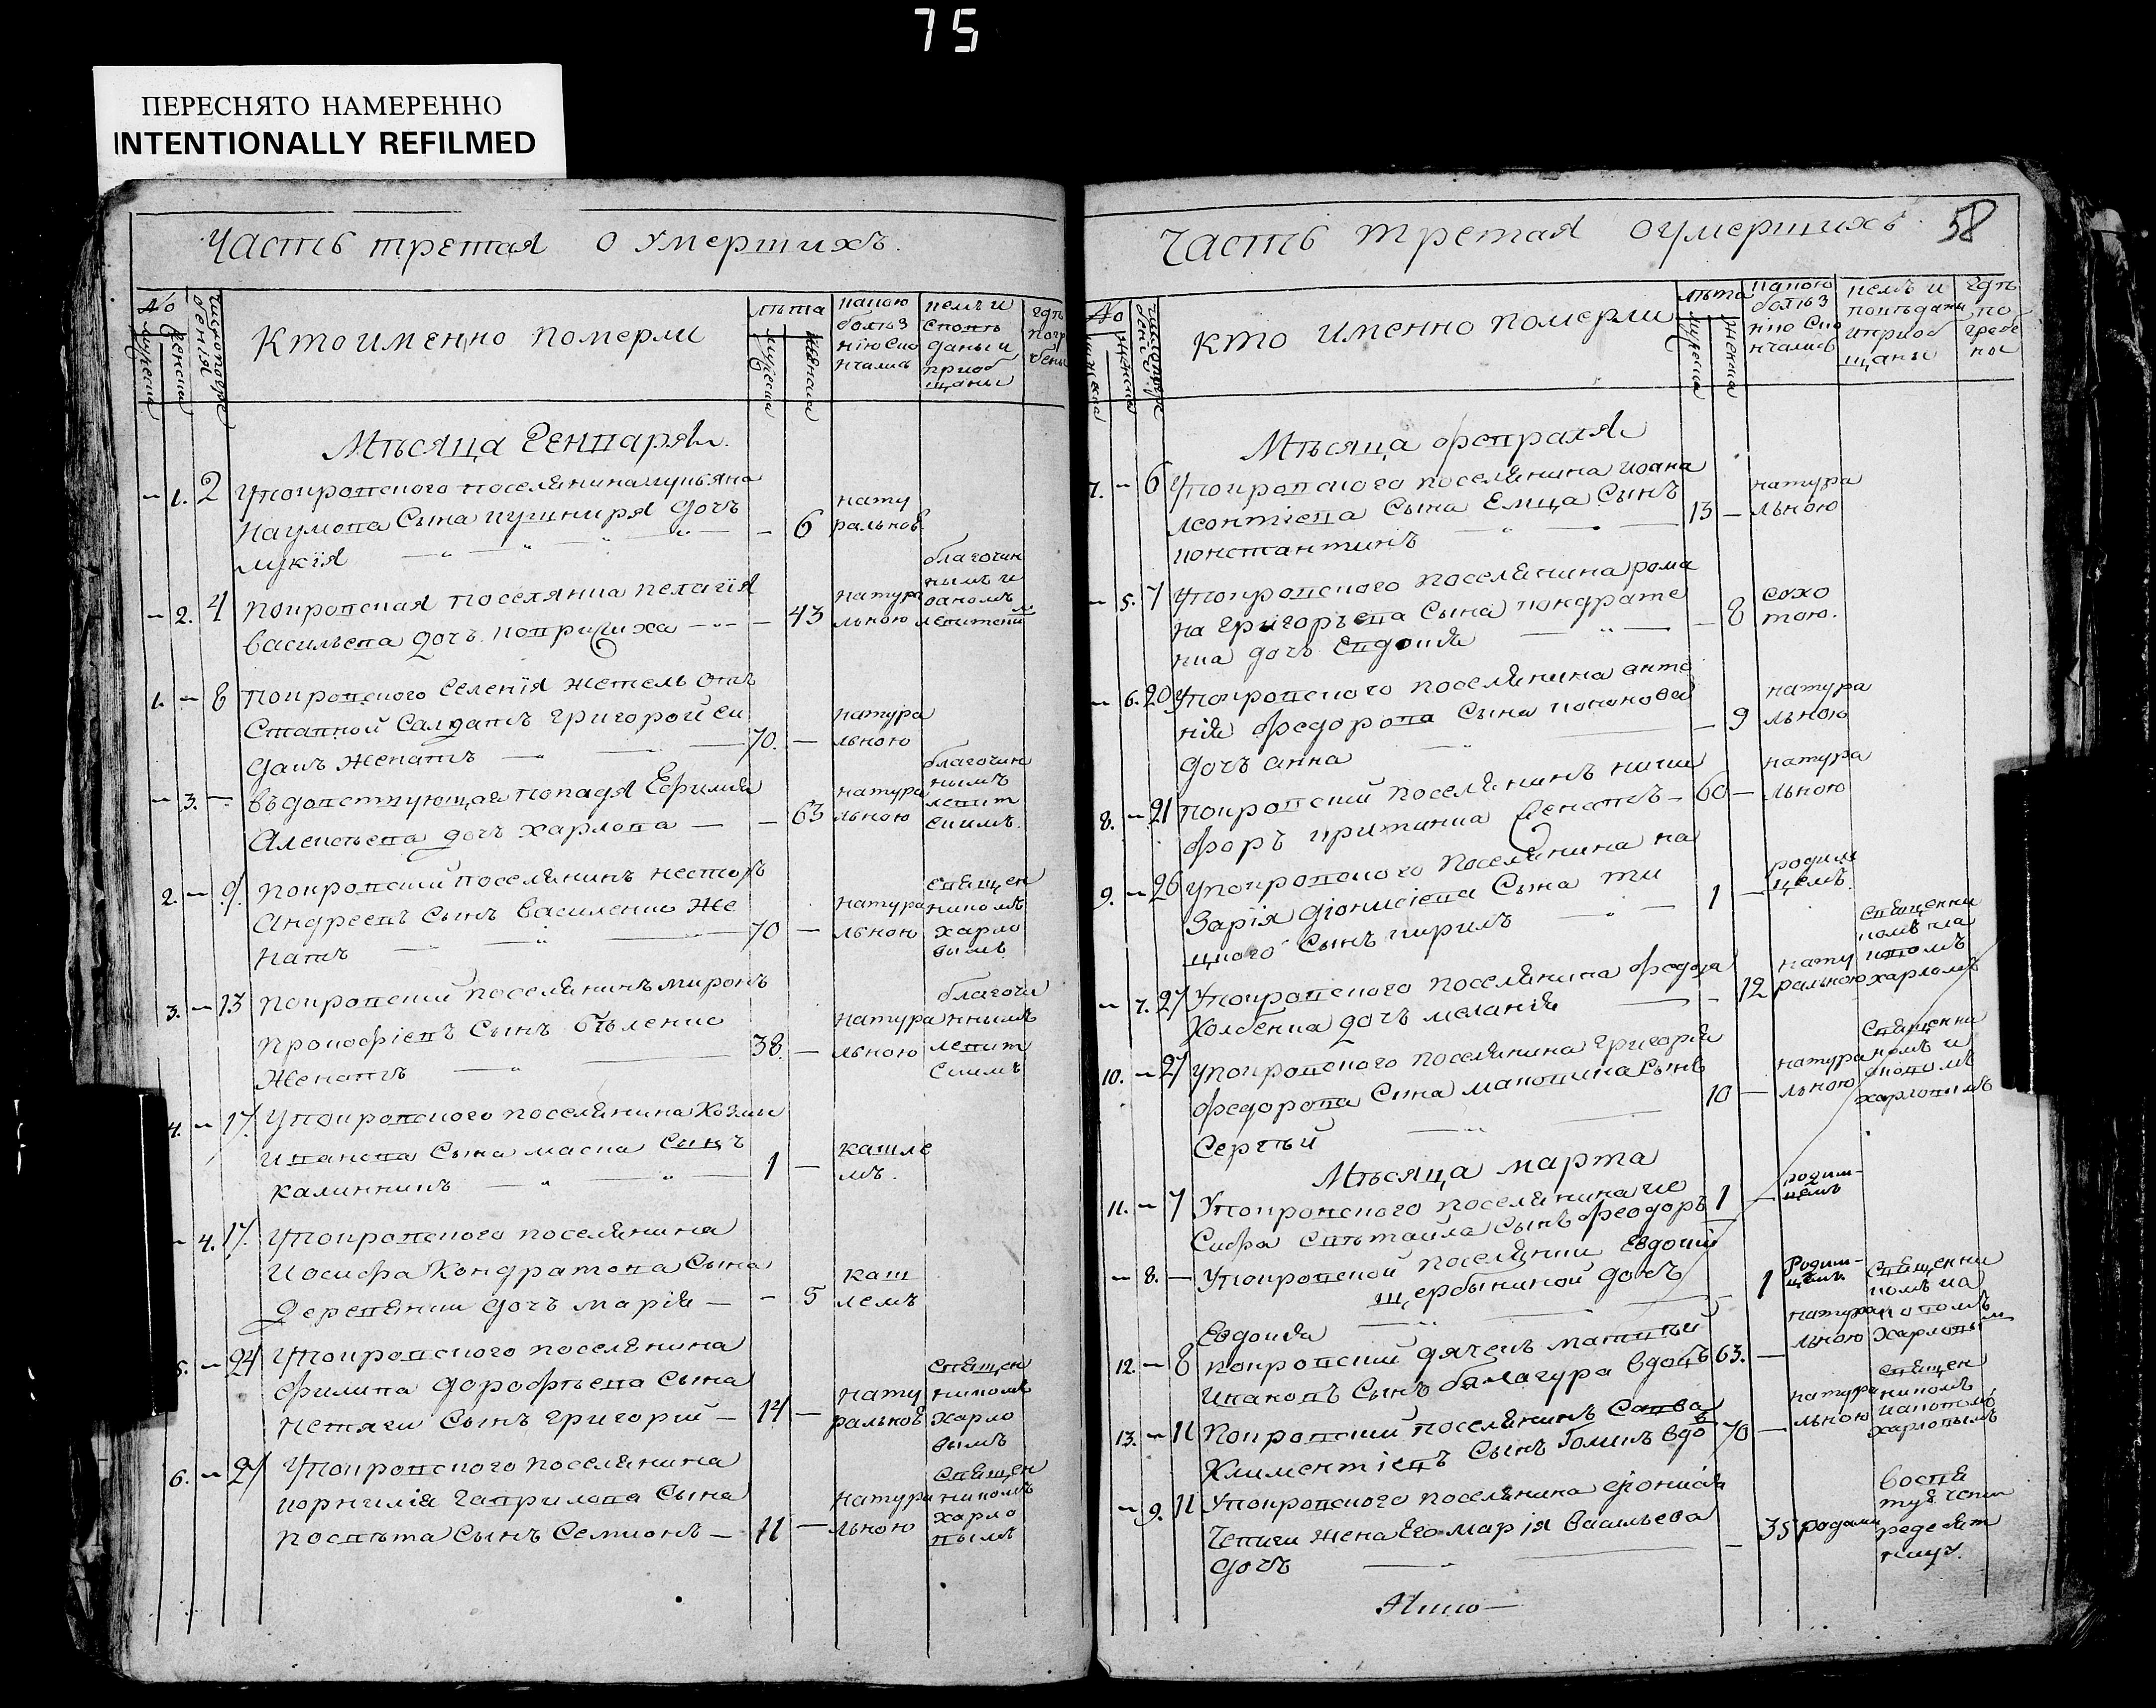 75
ПЕРЕСНЯТО НАМЕРЕННО
INTENTIONALLY REFILMED
Часть третая о умерших.
№
мужеска
женска
Кто именно померли
лѣта
мужеска
женска
какою
болѣз
нію ско
нчались
кемъ и
споѣ
даны и
приоб
щаны
гдѣ
погр
бены
Мѣсяца Генваря
– 1. 2 У покровского поселянина лукьяна
Наумова Сына кушниря дочъ
лукїя – 6
нату
ральною
– 2. 4 Покровская поселянка пелагїя
васильева дочъ – 43
натура
льною
благочин
нымъ и
1. – 8 Покровского селенїя жетель отъ
Ставной Салдатъ григорой
женатъ 70. –
натура
льною
– 3. – вьдовствующая попадя Ефимія
Алексѣева дочъ харлова – 63
натура
льною
благочин
нымъ
левит
скимъ.
2. – 9. покровский поселянинъ несторъ
Андреевъ Сынъ василенко же
натъ 70 –
натура
льною
священ
никомъ
харло
вымъ
3. – 13 покровский поселянинъ миронъ
прокофіевъ Сынъ бѣленко
женатъ 38. –
натура
льною
благочи
ннымъ
левит
скимъ
4. – 17. У покровского поселянина Козми
Иванова Сына Сынъ
калинникъ 1 –
кашле
мъ.
– 4. 17. У покровского поселянина
Иосифа Кондратова Сына
Деревянки дочъ марія – – 5
каш
лемъ
5. – 24 У покровского поселянина
филипа дорофѣева Сына
нетяги Сынъ григорий – 14 –
нату
ральною
священ
никомъ
харло
вымъ
6. – 27 У покровского поселянина
корнилія гаврилова Сына
Сынъ Семионъ – 11 –
натура
льною
священ
никомъ
харло
вымъ
Часть третая о умершихъ
58
№
мужеска
женска
кто именно померли
лѣта
мужеска
женска
какою
болѣз
нію ско
нчались
кемъ и
приоб
щаны
гдѣ
по
гребе
ны
Мѣсяца февраля
7. – 6 У покровского поселянина иоана
леонтіева Сына Емца Сынъ
константинъ 13 –
натура
льною
– 5. 7 У покровского поселянина рома
на григорьева Сына кондрате
нка дочъ Евдокія – 8
сухо
тою.
– 6. 20 У покровского поселянина анто
нія федорова Сына
дочъ анна – 9
натура
льною
8. – 21 покровский поселянинъ ники
форъ женатъ – 60 –
натура
льною
9. – 26 У покровского поселянина на
зарія діонисіева Сына ти
цкого Сынъ кирилъ 1 –
родим
цемъ.
– 7. 27 У покровского поселянина федора
дочъ меланія – 12
нату
ральною
священни
комъ
харлом
10. – 27 У покровского поселянина григорія
федорова Сина Сынъ
Сергѣй 10 –
натура
льною
священни
комъ
харловымъ
Мѣсяца марта
11. – 7 У покровского поселянина ио
сифа Свѣтайла Сынъ феодоръ 1 –
родим-
цемъ
– 8. – У покровской поселянки Евдокіи
щербининой дочъ
Евдокія 1
Родим-
цемъ.
12. – 8 покровский дячекъ матвѣй
Ивановъ Сынъ балагура вдовъ 63. –
натура
льною
священни
комъ
харловым
13. – 11 Покровский поселянинъ Савва
Климентіевъ Сынъ Голикъ вдо
в 70 –
натура
льною
священ
никомъ
харловымъ
– 9. 11 У покровского поселянина діонисія
жена его марія васильева
дочъ – 35
родами